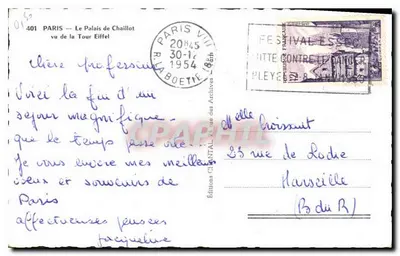 401 PARIS — Le Palais de Chaillot
vu de la Tour Eiffel
PARIS VIII
20H45
30-1
1954
R. LA BOETIE (8e)
FESTIVAL
LUTTE CONTRE LE
PLEYEL
Chère professeur
Voici la fin d'un
séjour magnifique.
que le temps passe vite.
Je vous envoie mes meilleurs
vœux et souvenirs de
Paris
affectueuses pensées
Jacqueline
Editions CHANTAL, rue des Archives - Paris
Melle Croissant
23 rue de Lodre
Marseille
(B du R)